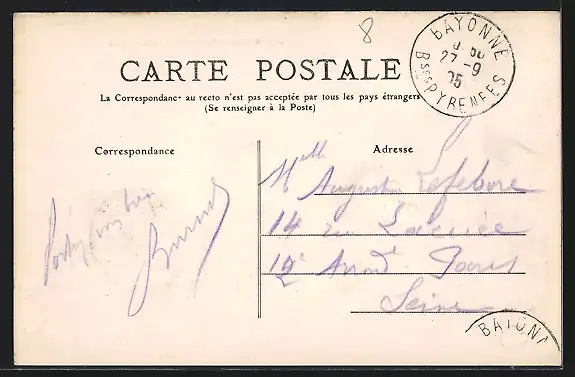 8
BAYONNE
27 -9
05
Bses PYRENEES
CARTE POSTALE
La Correspondance au recto n'est pas acceptée par tous les pays étrangers
(Se renseigner à la Poste)
Correspondance
Adresse
Melle Augusta Lefebvre
14 rue Lacuée
12e Arrondt Paris
Seine
BAYONN